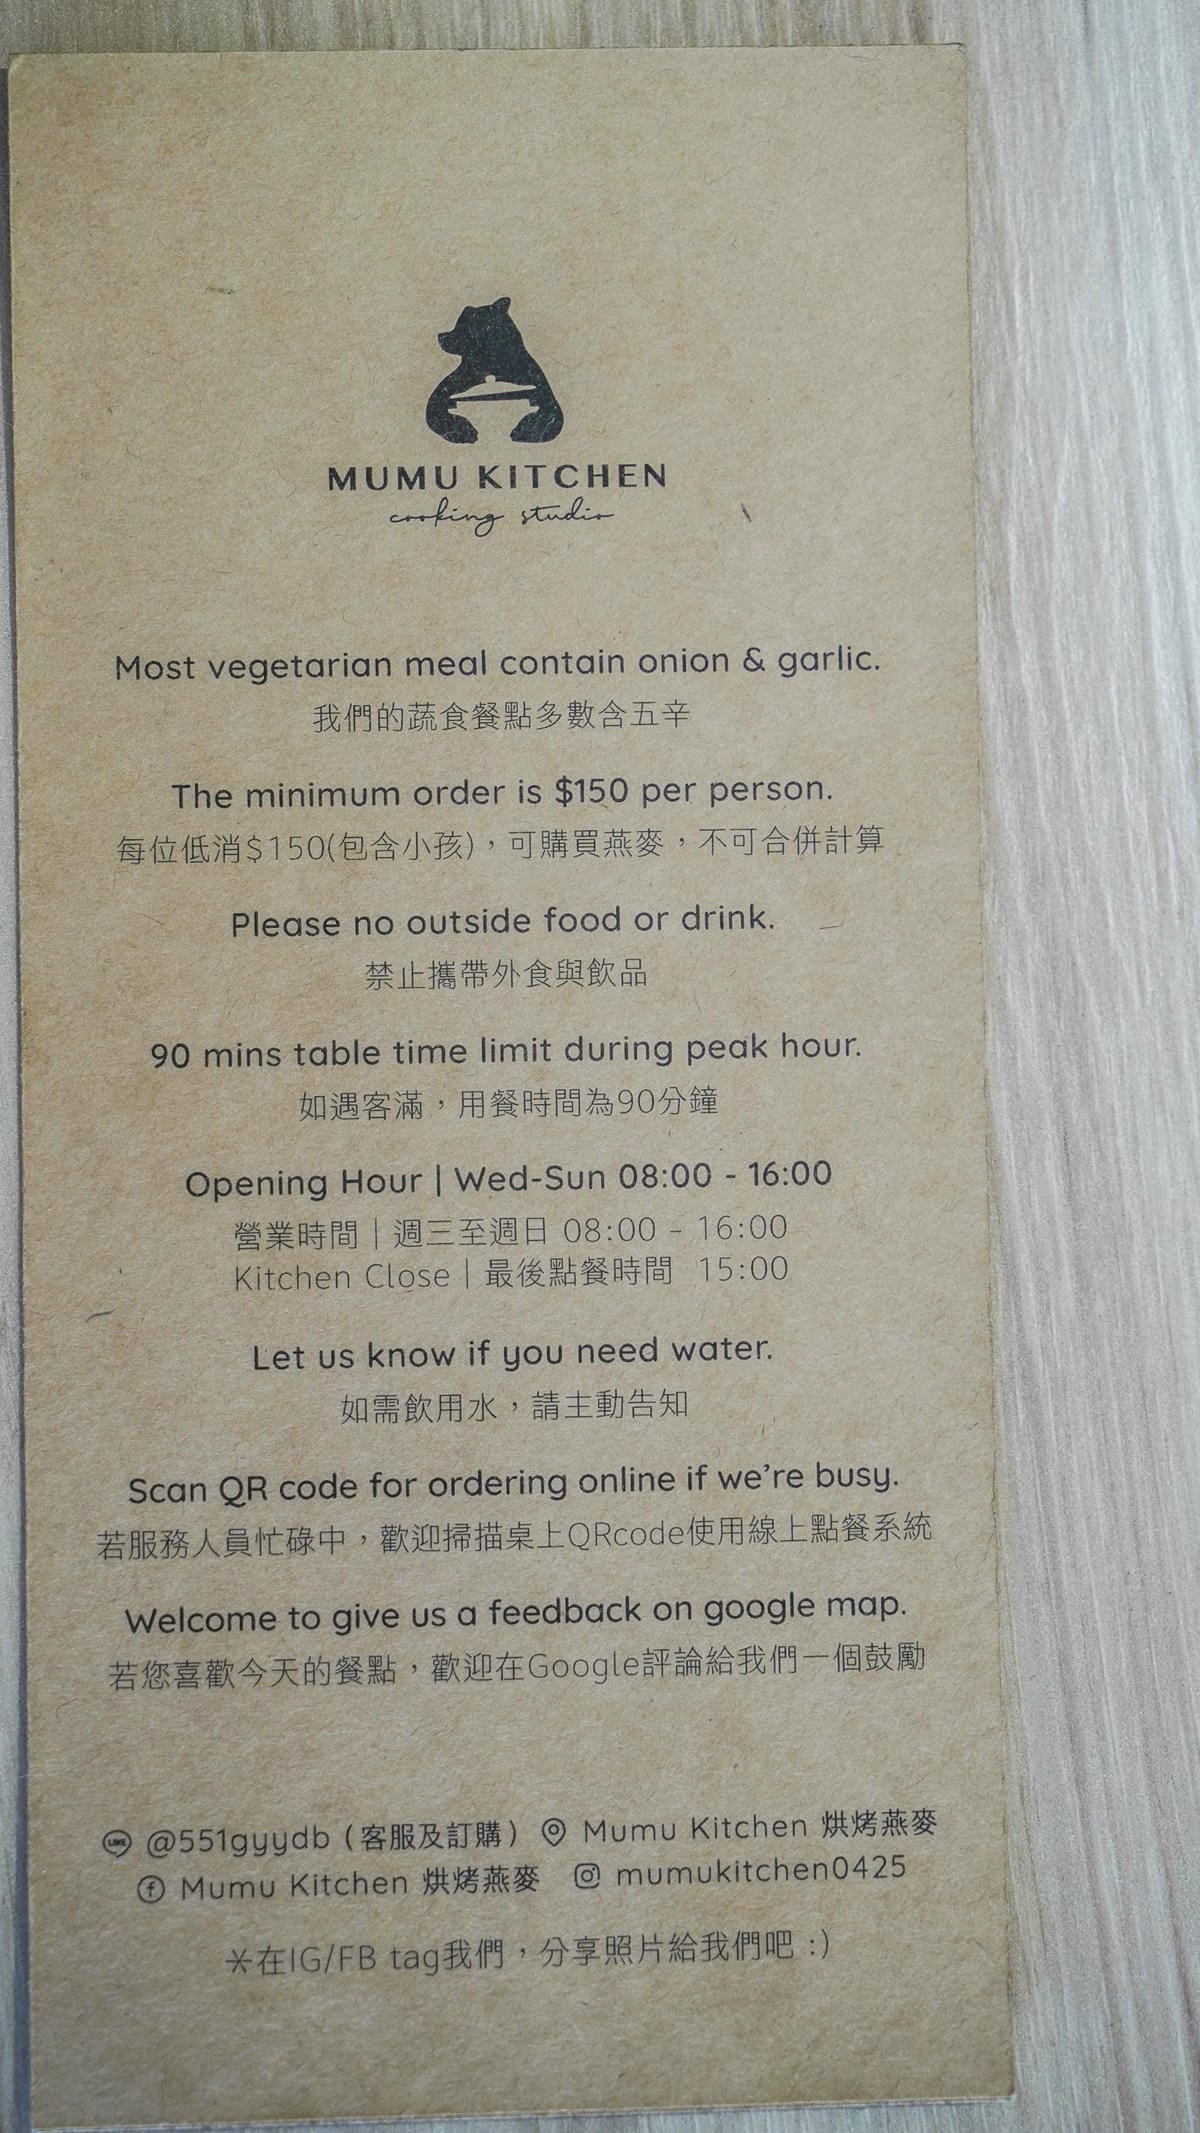 MUMU KITCHEN
cooking studio
Most vegetarian meal contain onion & garlic.
我們的蔬食餐點多數含五辛
The minimum order is $150 per person.
每位低消$150(包含小孩)，可購買燕麥，不可合併計算
Please no outside food or drink.
禁止攜帶外食與飲品
90 mins table time limit during peak hour.
如遇客滿，用餐時間為90分鐘
Opening Hour | Wed-Sun 08:00 - 16:00
營業時間｜週三至週日 08:00 - 16:00
Kitchen Close｜最後點餐時間 15:00
Let us know if you need water.
如需飲用水，請主動告知
Scan QR code for ordering online if we're busy.
若服務人員忙碌中，歡迎掃描桌上QRcode使用線上點餐系統
Welcome to give us a feedback on google map.
若您喜歡今天的餐點，歡迎在Google評論給我們一個鼓勵
LINE @551gyydb (客服及訂購) Mumu Kitchen 烘烤燕麥
Mumu Kitchen 烘烤燕麥 mumukitchen0425
＊在IG/FB tag我們，分享照片給我們吧 :)